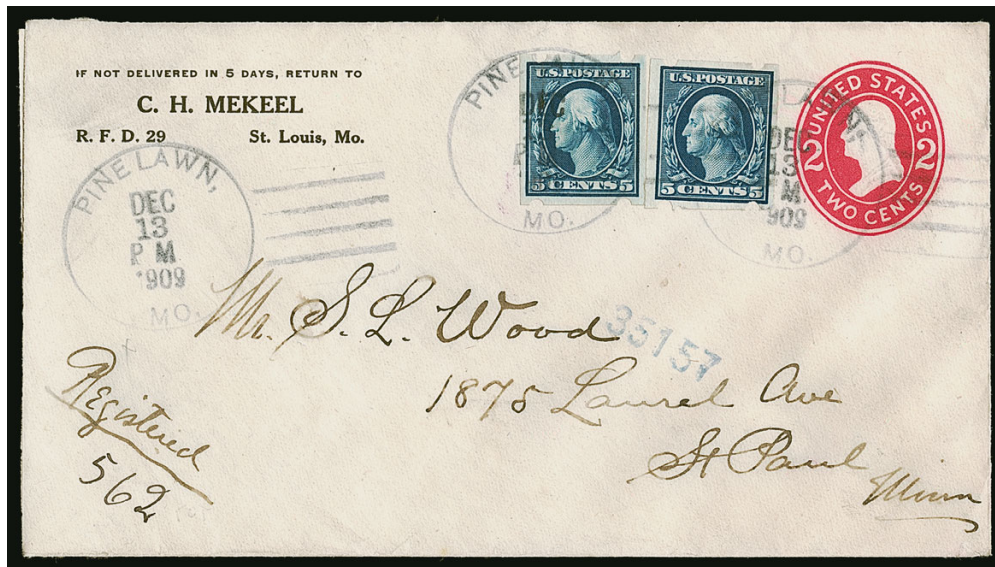 IF NOT DELIVERED IN 5 DAYS, RETURN TO
C. H. MEKEEL
R. F. D. 29 St. Louis, Mo.
PINE LAWN,
DEC
13
P M
'909
MO.
PINE LAWN
DEC
MO.
U.S. POSTAGE
5 CENTS 5
U.S. POSTAGE
5 CENTS 5
DEC
13
M.
909
MO.
UNITED STATES
2 2
TWO CENTS
Mr. S. L. Wood
35157
1875 Laurel Ave
St Paul
Minn
Registered
562